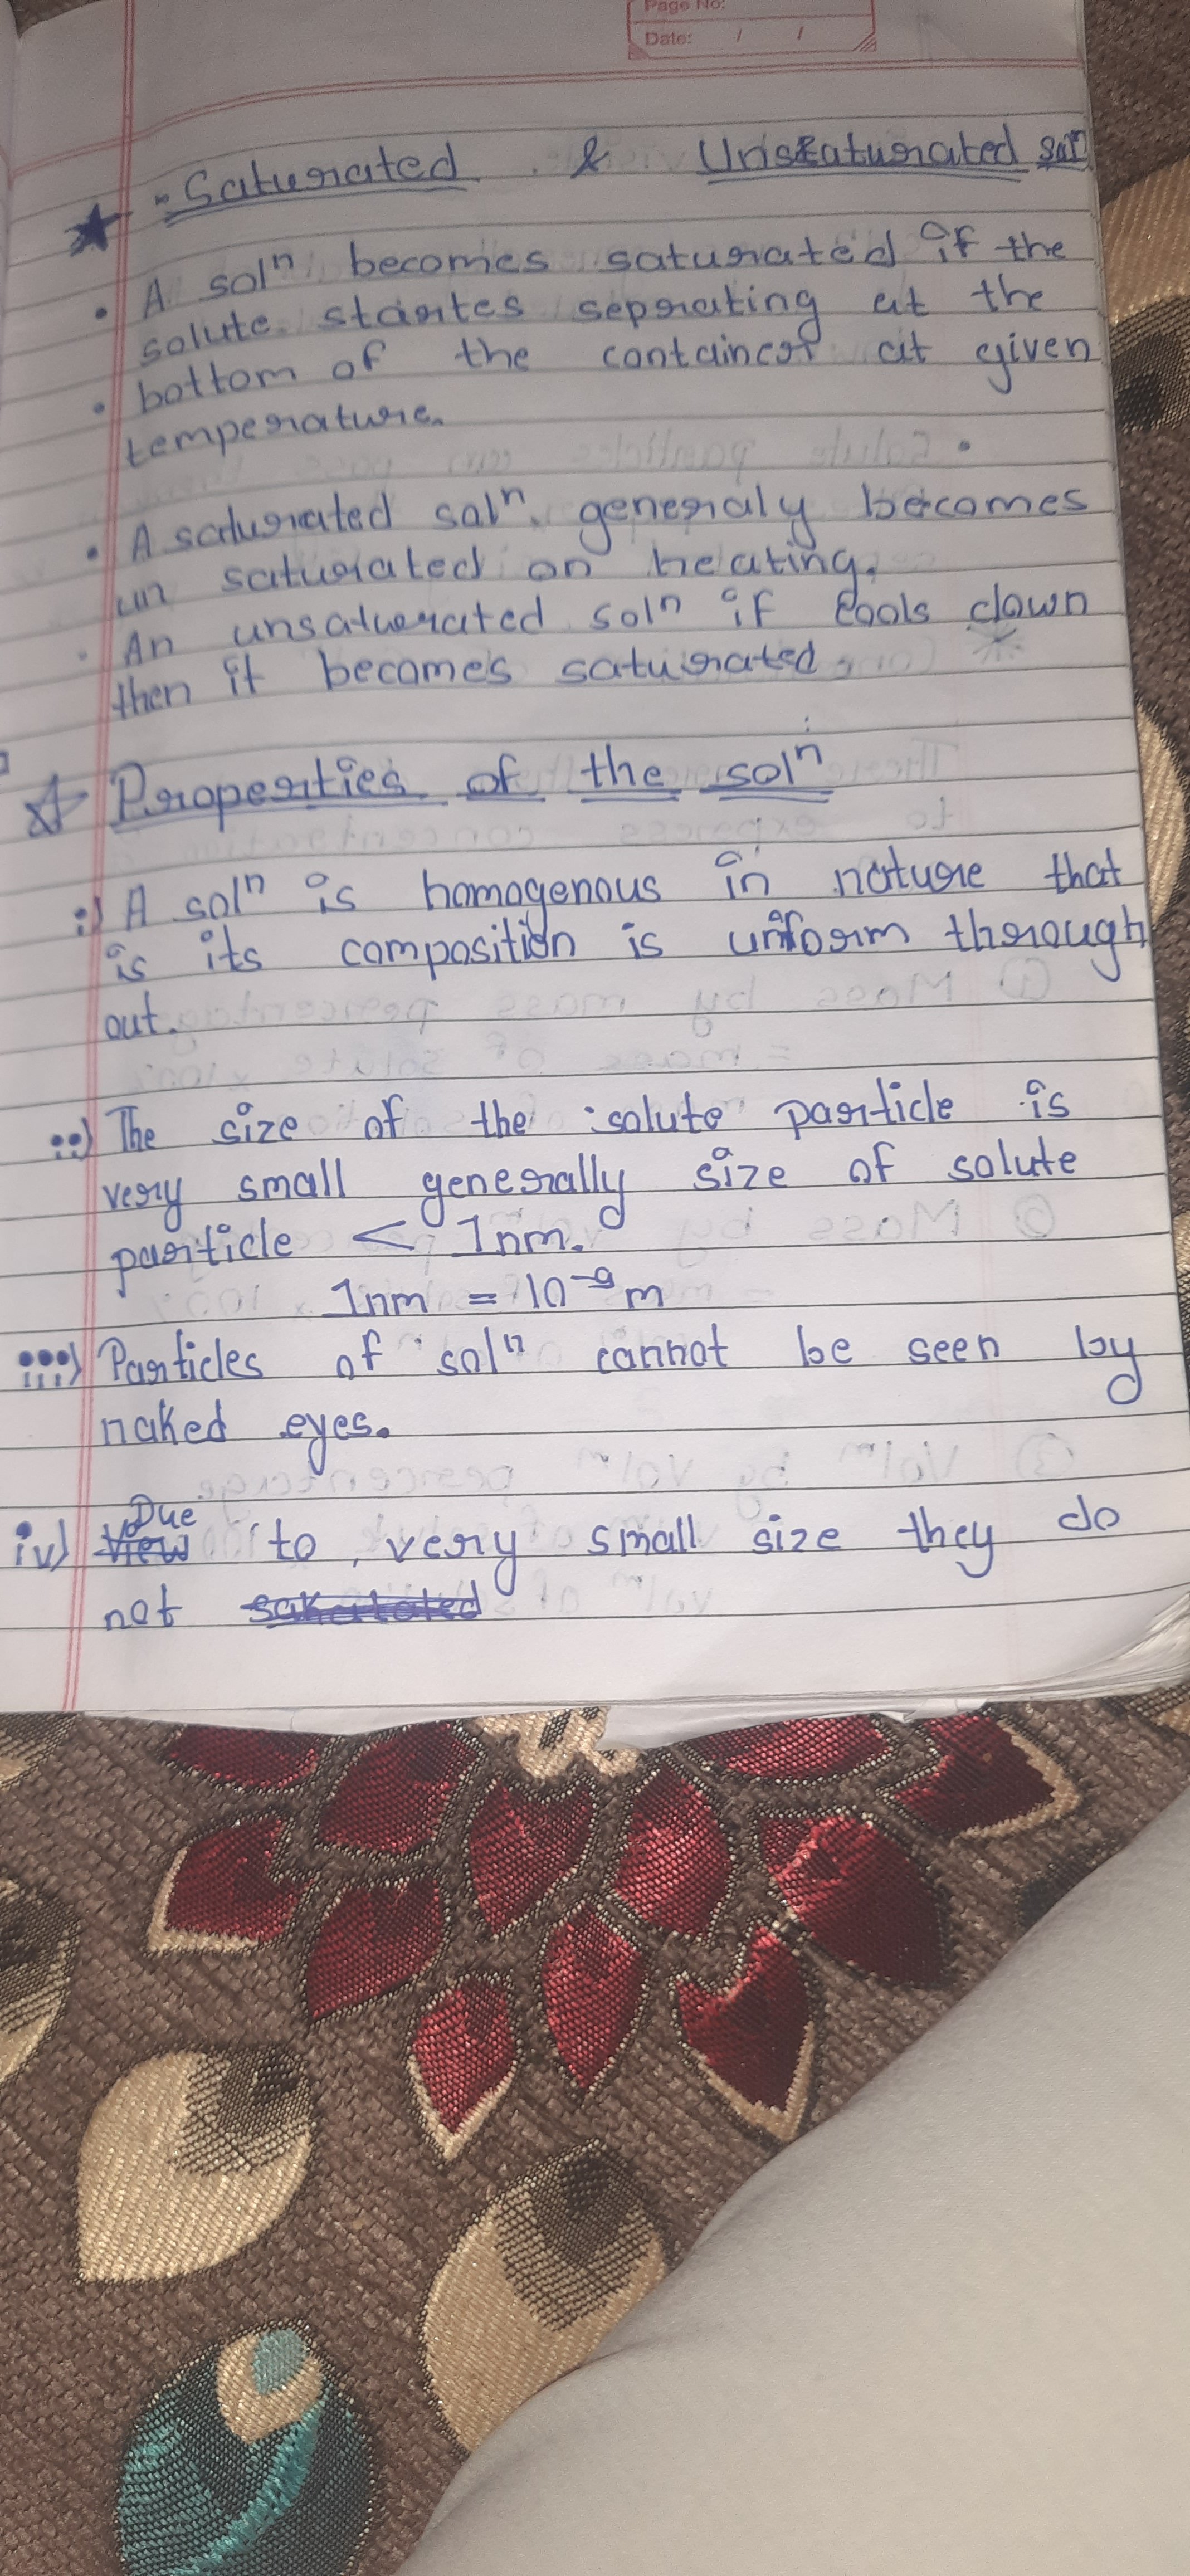 Page No:
Date: / /
Saturated & Unsaturated solⁿ
• A solⁿ becomes saturated if the
solute startes seprating at the
• bottom of the container at given
temperature.
• A saturated solⁿ generaly becomes
un saturated on heating.
• An unsaturated solⁿ if cools down
then it becomes saturated.
Properties of the solⁿ
i) A solⁿ is homogenous in nature that
is its composition is uniform through
out.
ii) The size of the solute particle is
very small generally size of solute
particle < 1nm.
1nm = 10⁻⁹m
iii) Particles of solⁿ cannot be seen by
naked eyes.
iv) Due to very small size they do
not